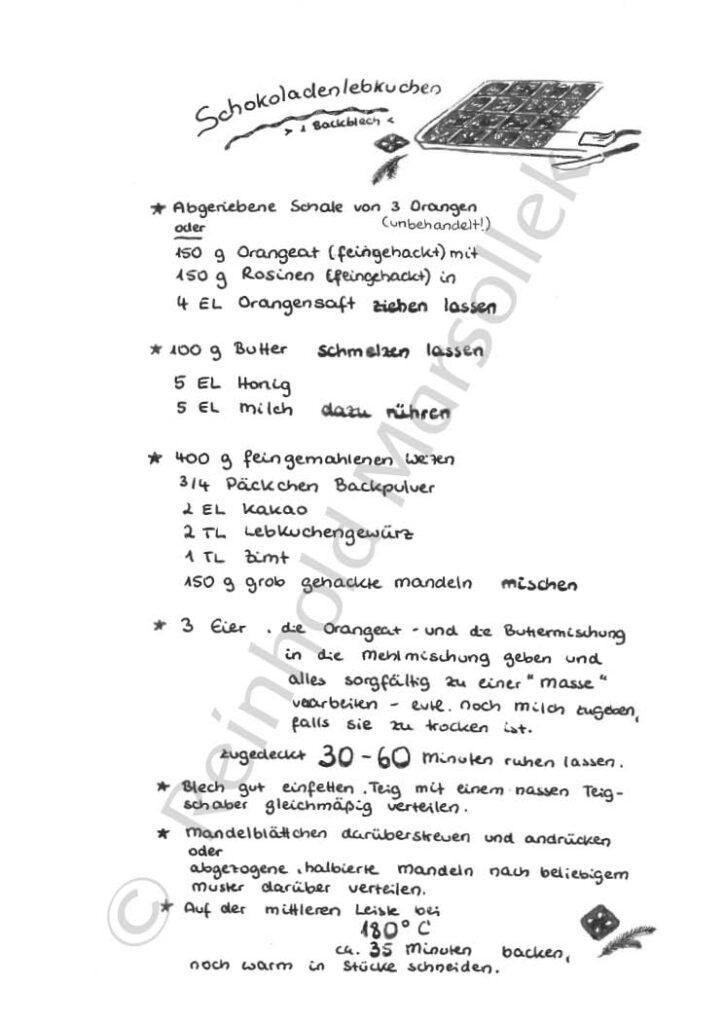 Schokoladenlebkuchen
> 1 Backblech <
* Abgeriebene Schale von 3 Orangen
(unbehandelt!)
oder
150 g Orangeat (feingehackt) mit
150 g Rosinen (feingehackt) in
4 EL Orangensaft ziehen lassen
* 100 g Butter schmelzen lassen
5 EL Honig
5 EL Milch dazu rühren
* 400 g feingemahlenen Weizen
3/4 Päckchen Backpulver
2 EL Kakao
2 TL Lebkuchengewürz
1 TL Zimt
150 g grob gehackte Mandeln mischen
* 3 Eier, die Orangeat- und die Buttermischung
in die Mehlmischung geben und
alles sorgfältig zu einer "Masse"
verarbeiten - evtl. noch Milch zugeben,
falls sie zu trocken ist.
Zugedeckt 30-60 Minuten ruhen lassen.
* Blech gut einfetten, Teig mit einem nassen Teig-
schaber gleichmäßig verteilen.
* Mandelblättchen darüberstreuen und andrücken
oder
abgezogene, halbierte Mandeln nach beliebigem
Muster darüber verteilen.
* Auf der mittleren Leiste bei
180° C
ca. 35 Minuten backen,
noch warm in Stücke schneiden.
© Reinhold Marsollek